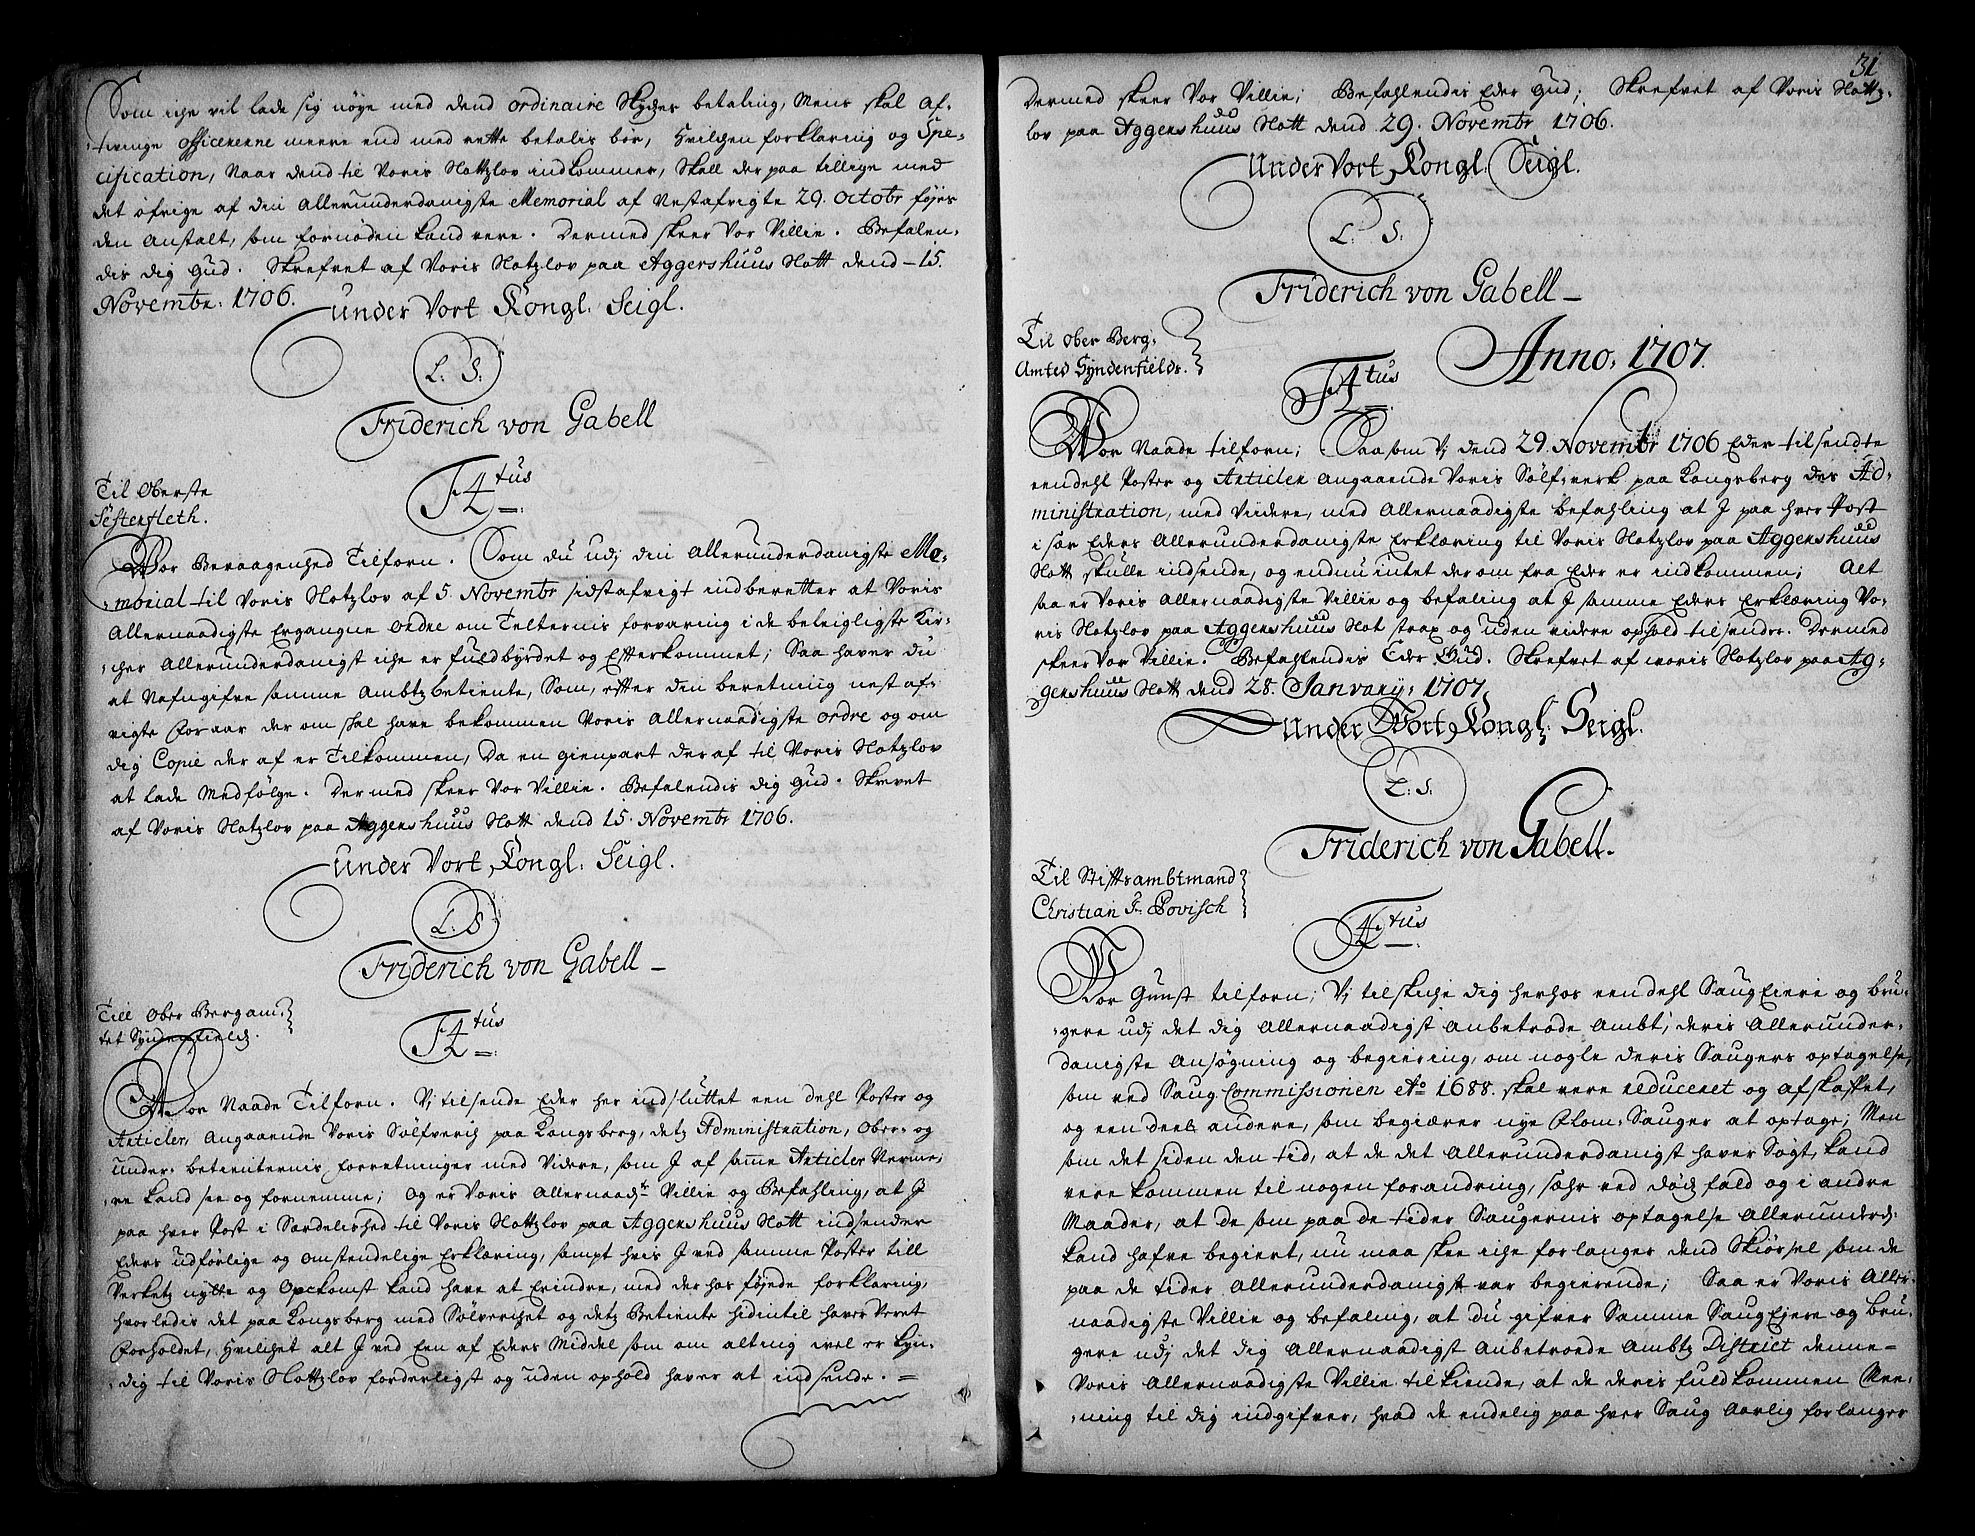 Som iche vil lade sig nøye med dend ordinaire Skydes betaling, Mens skal af-
tvinge officererne meere end med rette betalis bør, Hvilchen forklaring og Spe-
cification, Naar dend til Voris Slotzlov indkommer, Skall der paa tillige med
det øfrige af din Allerunderdanigste Memorial af Nestafvigte 29. Octobr føyes
den Anstalt, som fornøden kand vere. Dermed skeer Vor Villie. Befalen-
dis dig Gud. Skrefvet af Voris Slotzlov paa Aggershuus Slott dend 15.
Novembr: 1706.
Under Vort Kongl: Seigl.
L: S:
Friderich von Gabell
Til Oberste
Sesterfleth.
F4tus
Vor Bevaagenhed Tilforn. Som du udj din Allerunderdanigste Me-
morial til Voris Slotzlov af 5. Novembr sidstafvigt indberetter at Voris
Allernaadigste Ergangne Ordre om Telternis forvaring i de beleigligste Kir-
cher Allerunderdanigst iche er fuldbyrdet og Efterkommet; Saa haver du
at Nafngifve samme Ambtzbetiente, Som, efter din beretning nest af-
vigte Foraar der om skal have bekommen Voris Allernaadigste Ordre og om
dig Copie der af er Tilkommen, Da en gienpart der af til Voris Slotzlov
at lade Medfølge. Dermed skeer Vor Villie. Befalendis dig Gud. Skrevet
af Voris Slotzlov paa Aggershuus Slott dend 15. Novembr 1706.
Under Vort Kongl: Seigl.
L: S
Friderich von Gabell
Till Ober Bergam-
tet Synden Fields.
F4tus
Vor Naade Tilforn. Vj tilsende Eder her indsluttet een dehl Poster og
Articler, Angaaende Voris Sølfverch paa Kongsberg, detz Administration, Ober- og
under- betienternis forretninger med Videre, som I af samme Articler Verme-
re kand see og fornemme; Og er Voris Allernaadste Villie og Befahling, at I
paa hver Post i Særdelished til Voris Slottzlov paa Aggershuus Slott indsender
Eders udførlige og omstendelige Erklæring, sampt hvis I ved samme Poster till
Verketz nytte og Opckomst kand have at Erindre, med der hos føyede forklaring,
hvorledis det paa Kongsberg med Sølfverchet og detz Betiente hidintil haver Veret
Forholdet, Hvilchet alt I ved Een af Eders Middel som om alting vel er kyn-
dig til Voris Slottzlov forderligst og uden ophold haver at indsende.
31
Dermed skeer Vor Villie; Befahlendis Eder Gud; Skrefvet af Voris Slottz-
lov paa Aggershuus Slott dend 29. Novembr 1706.
Under Vort Kongl: Seigl.
L: S:
Friderich von Gabell
Anno, 1707.
Til Ober Berg-
Amted Syndenfields.
F4tus
Vor Naade tilforn; Saasom Vj dend 29. Novembr 1706 Eder tilsendte
eendehl Poster og Articler Angaaende Voris Sølf-verk paa Kongsberg des Ad-
ministration, med Videre, med Allernaadigste befahling at I paa hver Post
i sær Eders Allerunderdanigste Erklæring til Voris Slotzlov paa Aggershuus
Slott skulle indsende, og endnu intet der om fra Eder er indkommen; Alt
saa er Voris Allernaadigste Villie og befaling at I samme Eders Erklæring Vo-
ris Slotzlov paa Aggershuus Slot strax og uden videre ophold tilsender. Dermed
skeer Vor Villie. Befahlendis Eder Gud. Skrefvet af Woris Slotzlov paa Ag-
gershuus Slott dend 28. Janvary: 1707.
Under Vort Kongl: Seigl.
L: S:
Friderich von Gabell.
Til Stiftsambtmand
Christian F. Povisch
F4tus
Vor Gunst tilforn; Vj tilskiche dig herhos een dehl Saug Eiere og bru-
gere udj det dig Allernaadigst Anbetroede Ambt, deris Allerunder-
danigste Ansøgning og begiering, om nogle deris Saugers optagelse,
som ved Saug Commissionen Ao 1688. skal vere reduceret og afskaffet,
og een deel andere, som begiærer nye Flom-Sauger at optage; Men
som det siden den tid, at de det Allerunderdanigst haver Søgt, kand
vere kommen til nogen forandring, sæhr ved dødz fald og i andre
Maader, at de som paa de tider Saugernis optagelse Allerunderd:
kand hafve begiert, nu maa skee iche forlanger dend Skiørsel som de
paa de tider Allerunderdanigst var begierende; Saa er Voris Aller-
naadigste Villie og befaling, at du gifver Samme Saug Ejere og bru-
gere udj det dig Allernaadigst Anbetroede Ambtz District denne
Voris Allernaadigste Villie tilkiende, at de deris fuldkommen Mee-
ning til dig indgifver, hvad de endelig paa hver Saug Aarlig forlanger